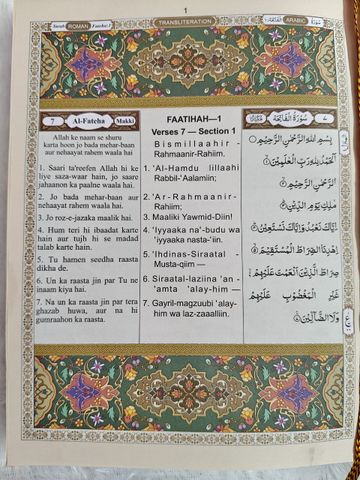 1
Surah ROMAN Fateha:1
TRANSLITERATION
ARABIC
7 Al-Fateha Makki
Allah ke naam se shuru
karta hoon jo bada mehar-baan
aur nehaayat rahem waala hai.
1. Saari ta'reefen Allah hi ke
liye saza-waar hain, jo saare
jahaanon ka paalne waala hai.
2. Jo bada mehar-baan aur
nehaayat rahem waala hai.
3. Jo roz-e-jazaka maalik hai.
4. Hum teri hi ibaadat karte
hain aur tujh hi se madad
talab karte hain.
5. Tu hamen seedha raasta
dikha de.
6. Un ka raasta jin par Tu ne
inaam kiya hai.
7. Na un ka raasta jin par tera
ghazab huwa, aur na hi
gumraahon ka raasta.
FAATIHAH—1
Verses 7 — Section 1
Bismillaahir-
Rahmaanir-Rahiim.
1. 'Al-Hamdu lillaahi
Rabbil-'Aalamiin;
2. 'Ar-Rahmaanir-
Rahiim;
3. Maaliki Yawmid-Diin!
4. 'Iyyaaka na'-budu wa
'iyyaaka nasta-'iin.
5. 'Ihdinas-Siraatal -
Musta-qiim —
6. Siraatal-laziina 'an -
'amta 'alay-him —
7. Gayril-magzuubi 'alay-
him wa laz-zaaalliin.
٧ سُوْرَةُ الْفَاتِحَةِ
بِسْمِ اللهِ الرَّحْمٰنِ الرَّحِيْمِ
اَلْحَمْدُ لِلّٰهِ رَبِّ الْعٰلَمِيْنَ
الرَّحْمٰنِ الرَّحِيْمِ
مٰلِكِ يَوْمِ الدِّيْنِ
اِيَّاكَ نَعْبُدُ وَاِيَّاكَ نَسْتَعِيْنُ
اِهْدِنَا الصِّرَاطَ الْمُسْتَقِيْمَ
صِرَاطَ الَّذِيْنَ اَنْعَمْتَ عَلَيْهِمْ
غَيْرِ الْمَغْضُوْبِ عَلَيْهِمْ
وَلَا الضَّآلِّيْنَ